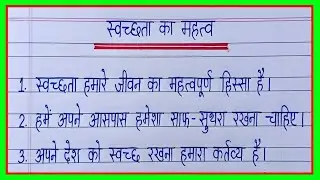 स्वच्छता का महत्व
1. स्वच्छता हमारे जीवन का महत्वपूर्ण हिस्सा है।
2. हमें अपने आसपास हमेशा साफ-सुथरा रखना चाहिए।
3. अपने देश को स्वच्छ रखना हमारा कर्तव्य है।